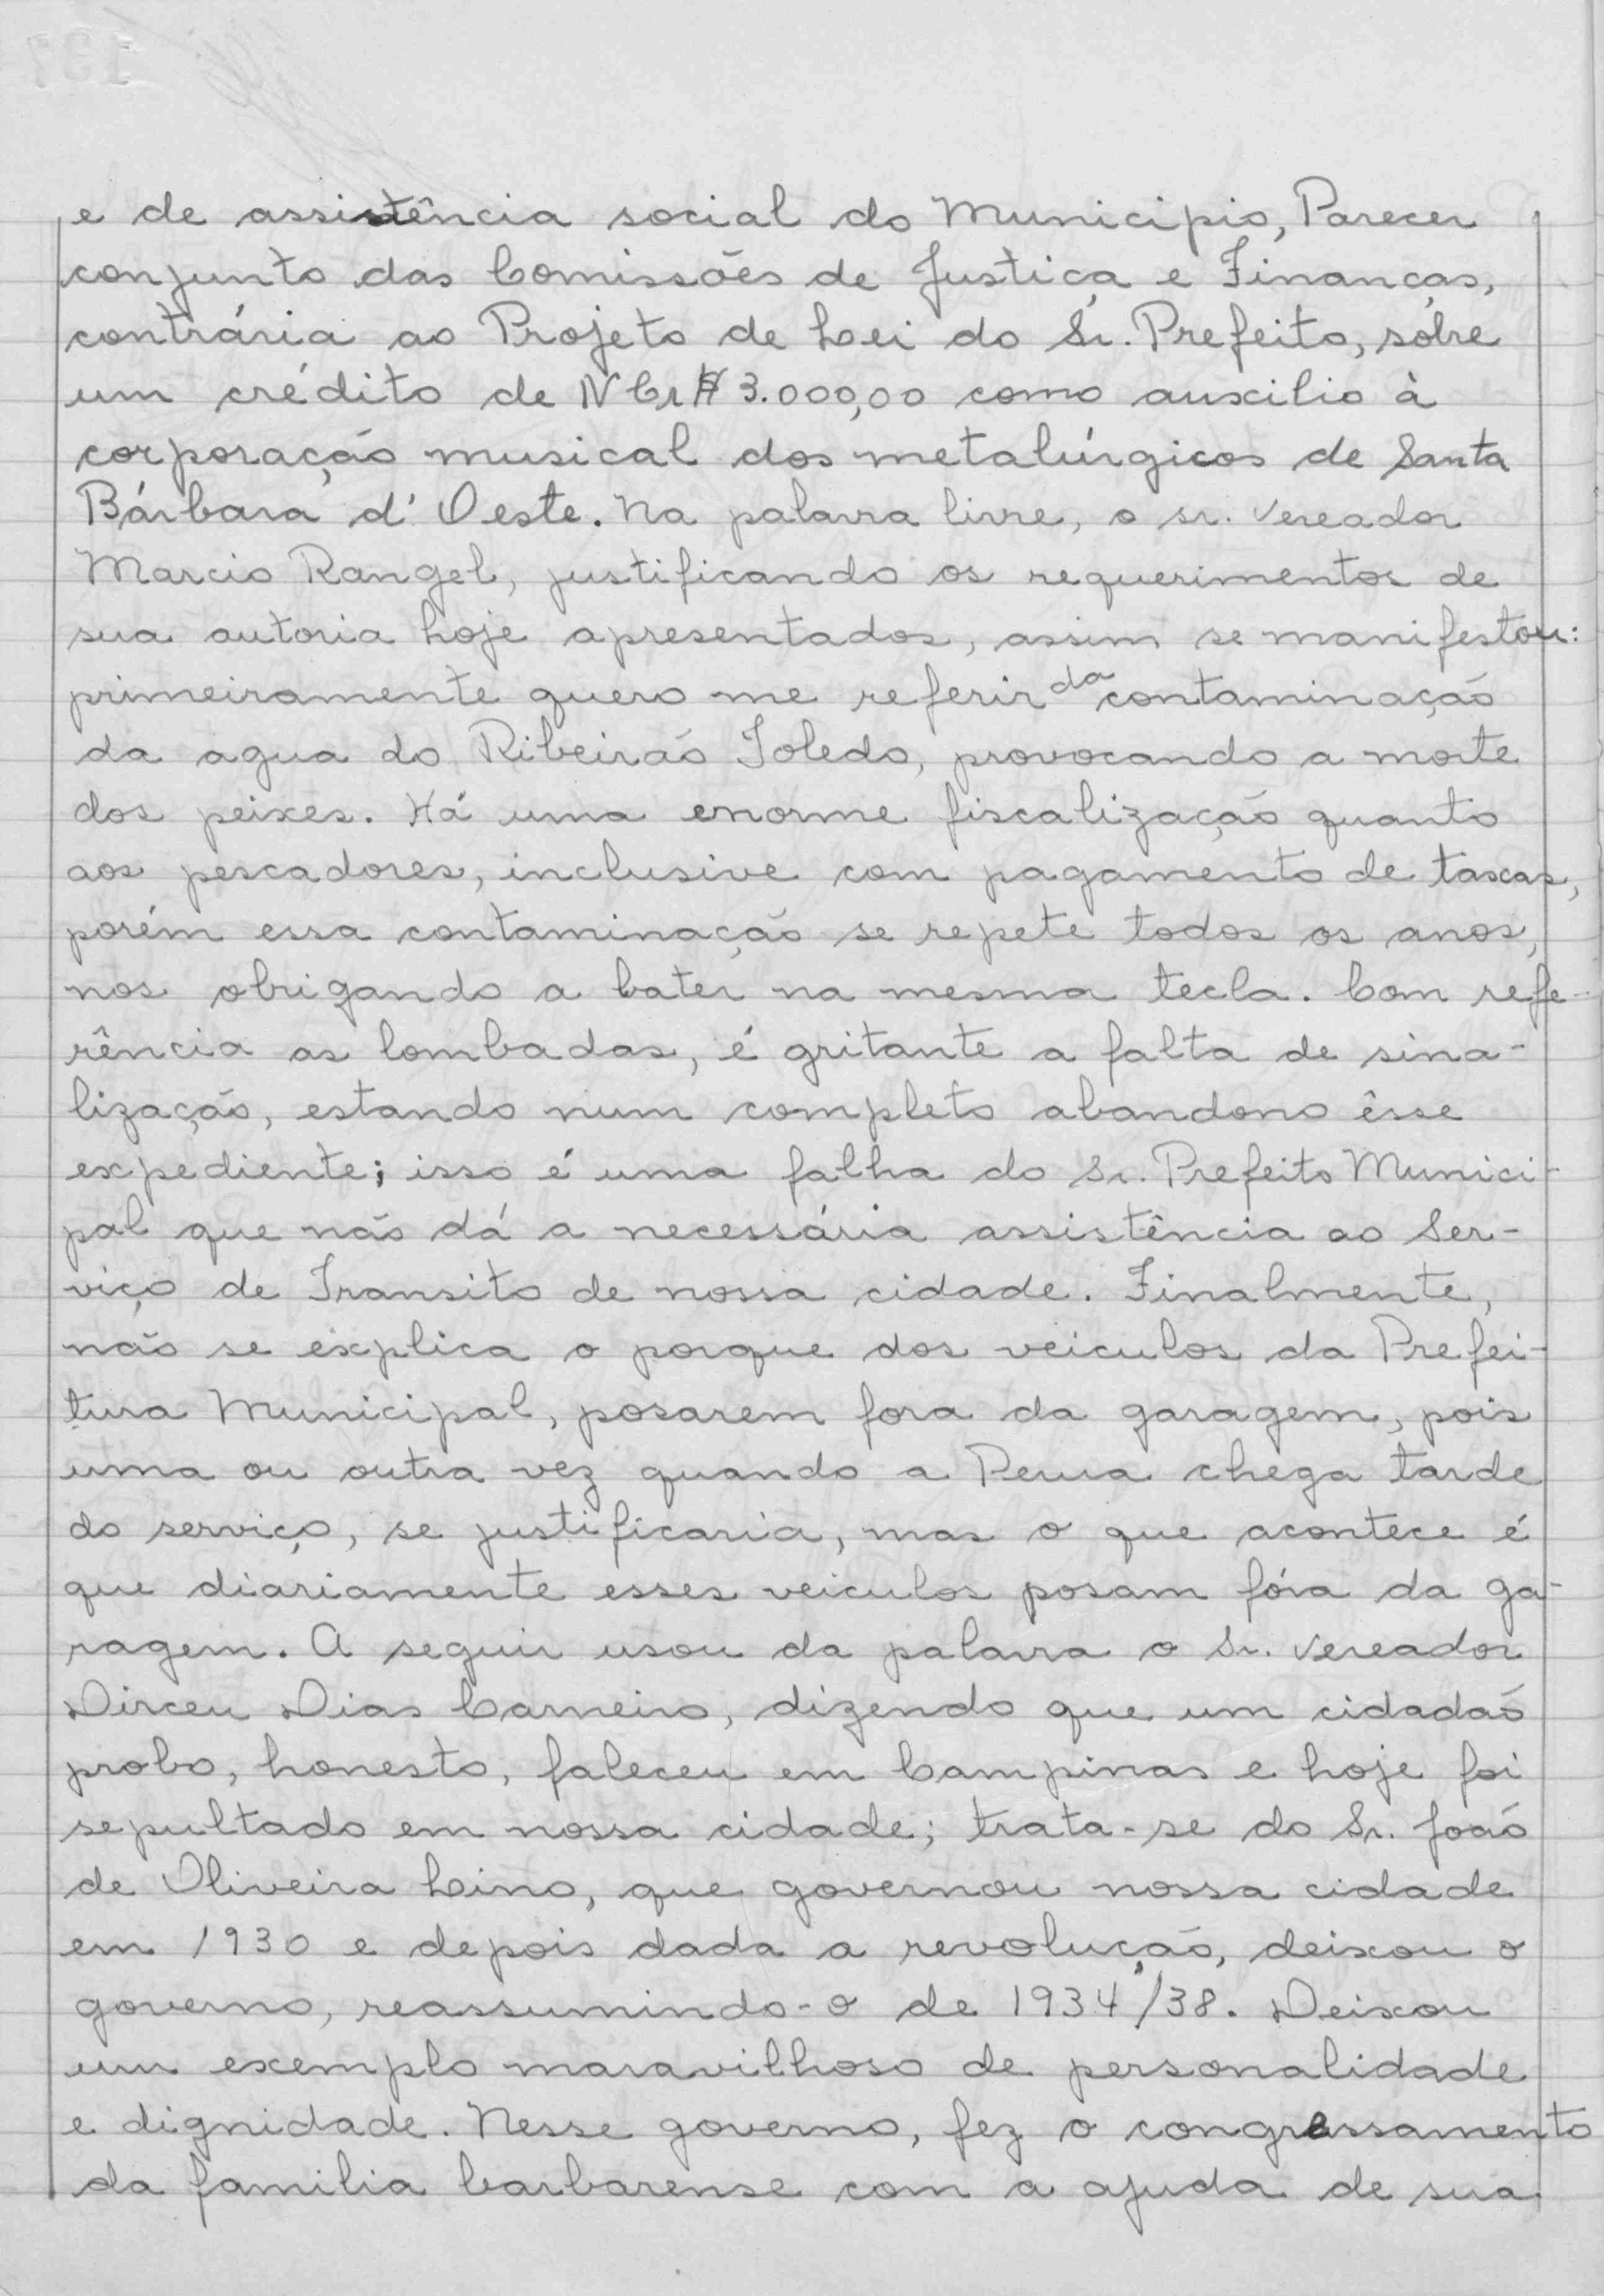 e de assistência social do Municipio, Parecer
conjunto das Comissões de Justiça e Finanças,
contrária ao Projeto de Lei do Sr. Prefeito, sôbre
um crédito de NCr$ 3.000,00 como auxilio à
corporação musical dos metalúrgicos de Santa
Bárbara d'Oeste. Na palavra livre, o sr. Vereador
Marcio Rangel, justificando os requerimentos de
sua autoria hoje apresentados, assim se manifestou:
primeiramente quero me referir da contaminação
da agua do Ribeirão Toledo, provocando a morte
dos peixes. Há uma enorme fiscalização quanto
aos pescadores, inclusive com pagamento de taxas,
porém essa contaminação se repete todos os anos,
nos obrigando a bater na mesma tecla. Com refe-
rência as lombadas, é gritante a falta de sina-
lização, estando num completo abandono êsse
expediente; isso é uma falha do Sr. Prefeito Munici-
pal que não dá a necessária assistência ao Ser-
viço de Transito de nossa cidade. Finalmente,
não se explica o porque dos veiculos da Prefei-
tura Municipal, posarem fora da garagem, pois
uma ou outra vez quando a Perua chega tarde
do serviço, se justificaria, mas o que acontece é
que diariamente esses veiculos posam fóra da ga-
ragem. A seguir usou da palavra o Sr. Vereador
Dirceu Dias Carneiro, dizendo que um cidadão
probo, honesto, faleceu em Campinas e hoje foi
sepultado em nossa cidade; trata-se do Sr. João
de Oliveira Lino, que governou nossa cidade
em 1930 e depois dada a revolução, deixou o
governo, reassumindo-o de 1934/38. Deixou
um exemplo maravilhoso de personalidade
e dignidade. Nesse governo, fez o congressamento
da familia barbarense com a ajuda de sua